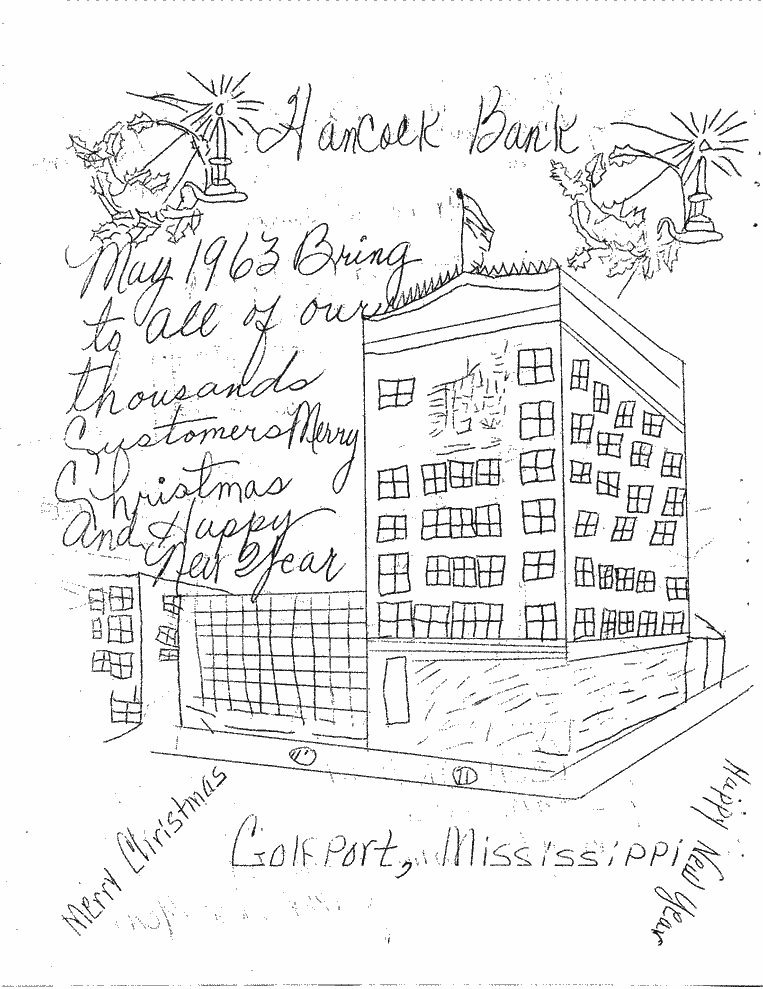 Hancock Bank
May 1963 Bring
to all of our
thousands
Customers Merry
Christmas
And Happy
New Year
Golfport, Mississippi
Merry Christmas
Happy New Year